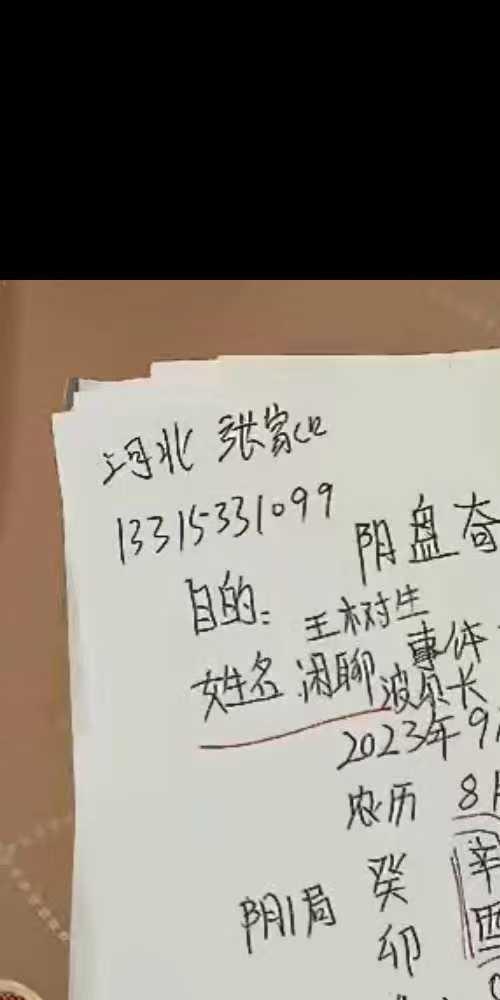 河北 张家口
13315331099
阴盘奇
目的:
王树生
姓名 闲聊 事体
波 长
2023年9月
农历 8月
癸 辛
阴1局
卯 酉